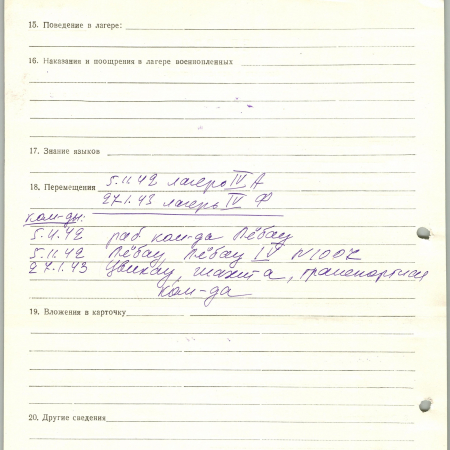 15. Поведение в лагере:
16. Наказания и поощрения в лагере военнопленных
17. Знание языков
18. Перемещения 5.11.42 лагерь IV А
27.1.43 лагерь IV Ф
ком-ды:
5.11.42 раб ком-да Лёбау
5.11.42 Лёбау, Лёбау IV N1007
27.1.43 Цвикау, шахта, транспортная
ком-да
19. Вложения в карточку
20. Другие сведения